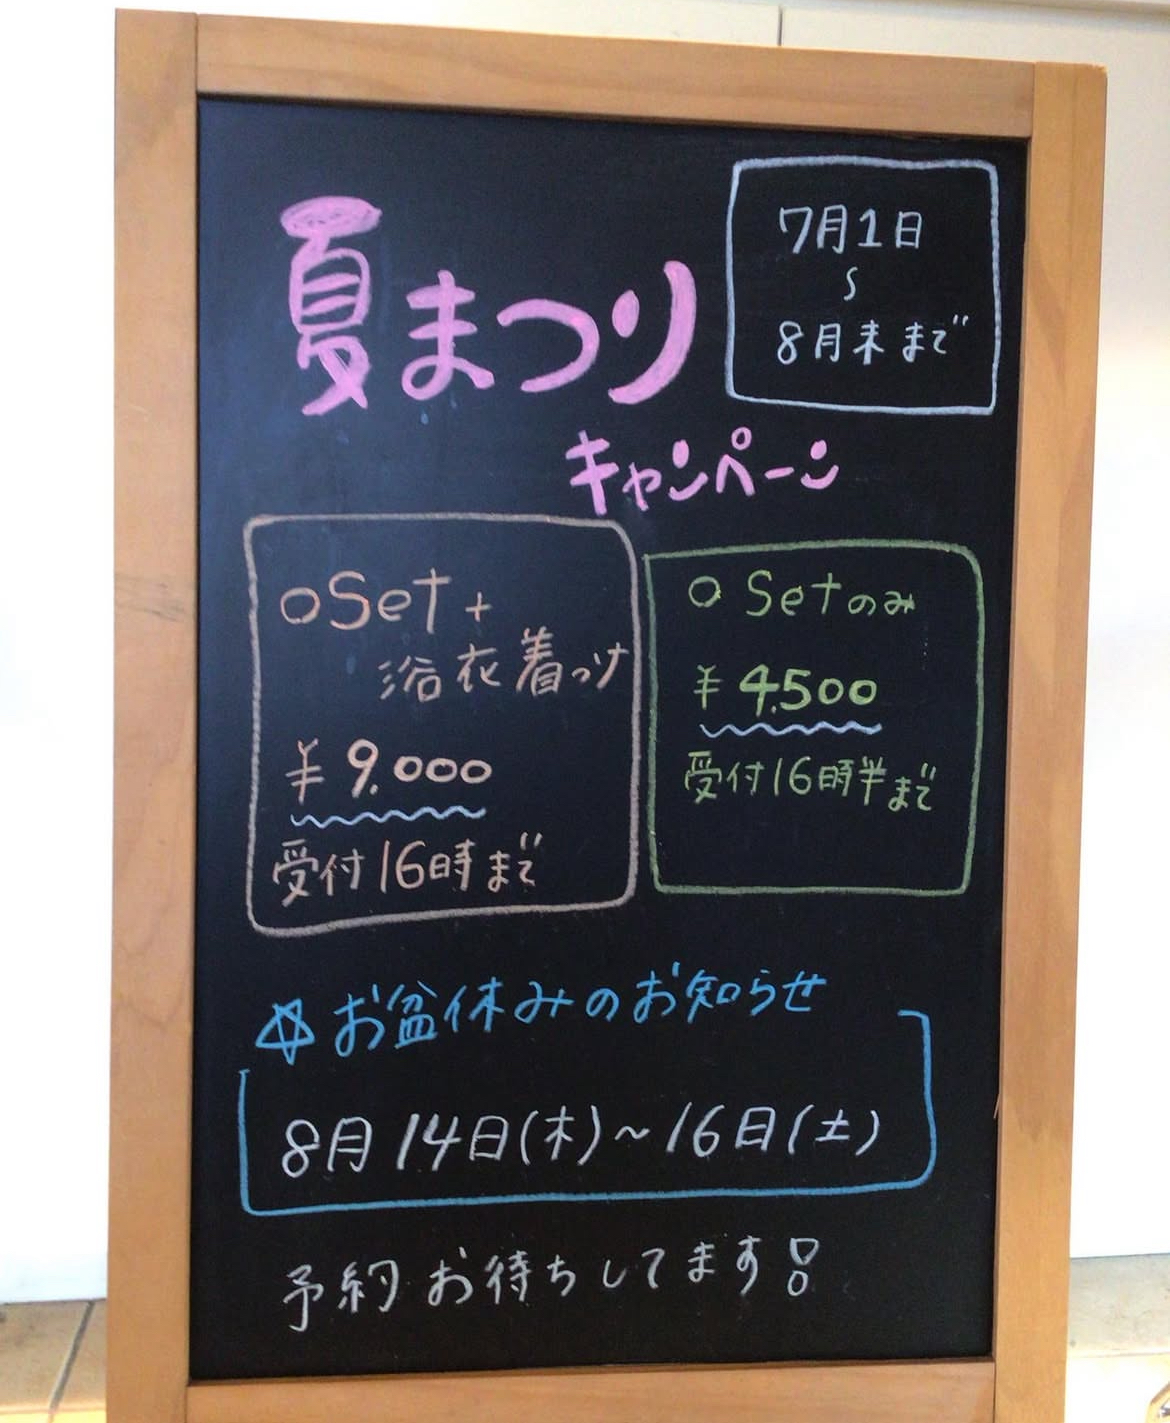 夏まつり
キャンペーン
7月1日
〜
8月末まで
○Set+
浴衣着つけ
¥9.000
受付16時まで
○Setのみ
¥4.500
受付16時半まで
☆お盆休みのお知らせ
8月14日(木)~16日(土)
予約お待ちしてます!